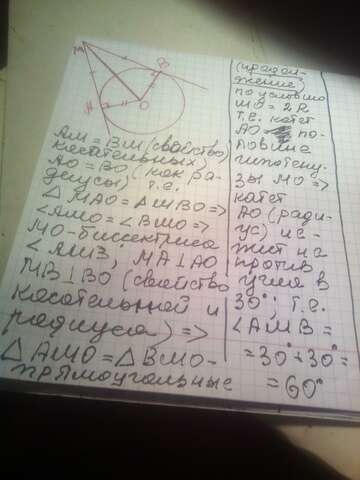 M
B
A
O
AM = BM (свойство
касательных)
AO = BO (как ра-
диусы) т.е.
△ MAO = △ MBO =>
∠AMO = ∠BMO =>
MO - биссектриса
∠ AMB, MA ⊥ AO
MB ⊥ BO (свойство
касательной и
радиуса) =>
△ AMO = △ BMO -
прямоугольные
(продол-
жение)
по условию
MO = 2R
т.е. катет
AO по-
ловине
гипотену-
зы MO =>
катет
AO (ради-
ус) ле-
жит на
против
угла в
30°, т.е.
∠AMB =
= 30° + 30° =
= 60°